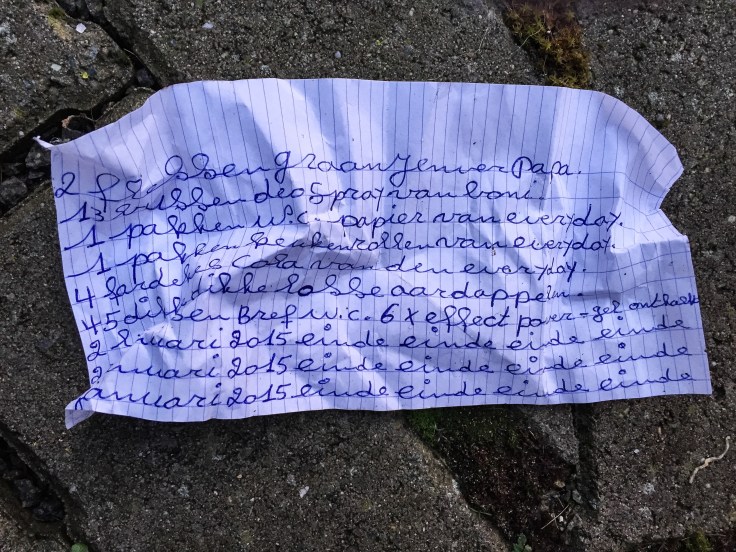 2 flessen graanjenever Papa.
13 bussen deo Spray van boni
1 pakken W.C. papier van everyday.
1 pakken keukenrollen van everyday.
4 fardels Cola van den everyday.
45 dikke losse aardappeln.
2 Bref W.C. 6x effect power-gel
2 januari 2015 einde einde einde einde
januari 2015 einde einde einde einde
januari 2015 einde einde einde einde